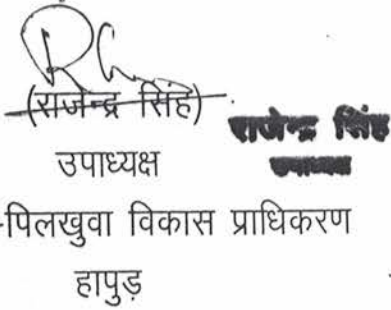 (राजेन्द्र सिंह)
राजेन्द्र सिंह
उपाध्यक्ष
उपाध्यक्ष
-पिलखुवा विकास प्राधिकरण
हापुड़